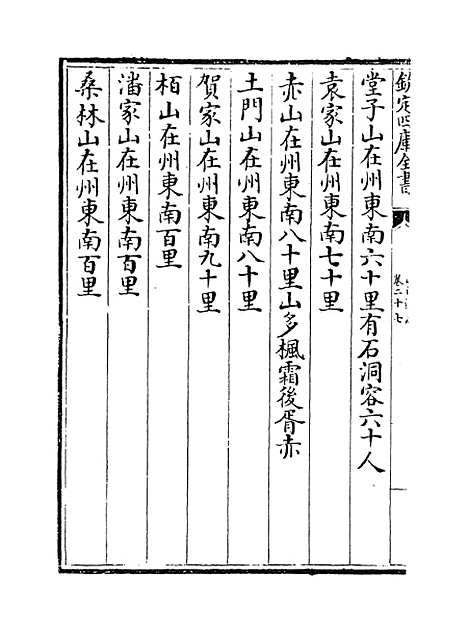 欽定四庫全書
卷二十七
堂子山在州東南六十里有石洞容六十人
袁家山在州東南七十里
赤山在州東南八十里山多楓霜後胥赤
土門山在州東南八十里
賀家山在州東南九十里
栢山在州東南百里
潘家山在州東南百里
桑林山在州東南百里